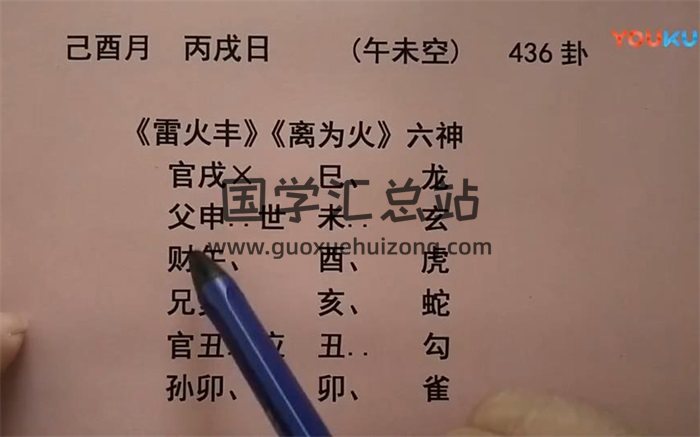 己酉月 丙戌日 (午未空) 436卦
YOUKU
《雷火丰》《离为火》六神
官戌× 巳、 龙
父申..世 未.. 玄
国学汇总站
www.guoxuehuizong.com
财午、 酉、 虎
兄 亥、 蛇
官丑 应 丑.. 勾
孙卯、 卯、 雀